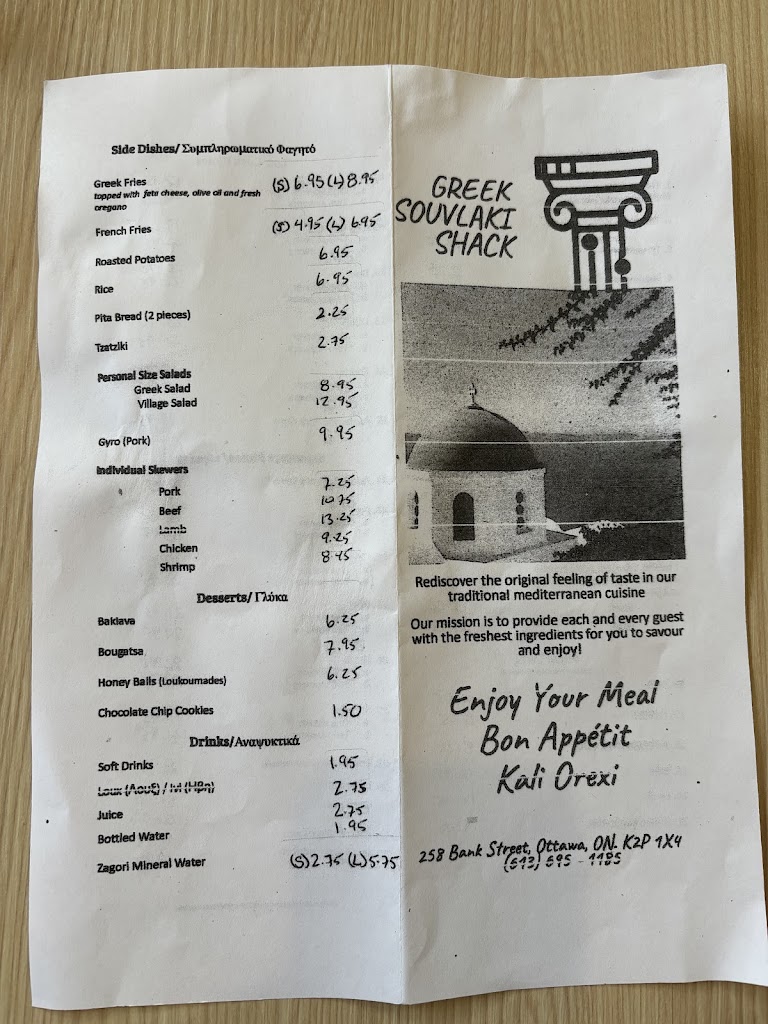 Side Dishes/ Συμπληρωματικό Φαγητό
Greek Fries (S) 6.95 (L) 8.95
topped with feta cheese, olive oil and fresh
oregano
French Fries (S) 4.95 (L) 6.95
Roasted Potatoes 6.95
Rice 6.95
Pita Bread (2 pieces) 2.25
Tzatziki 2.75
Personal Size Salads
Greek Salad 8.95
Village Salad 12.95
Gyro (Pork) 9.95
Individual Skewers
Pork 7.25
Beef 10.75
Lamb 13.25
Chicken 9.25
Shrimp 8.45
Desserts/ Γλύκα
Baklava 6.25
Bougatsa 7.95
Honey Balls (Loukoumades) 6.25
Chocolate Chip Cookies 1.50
Drinks/Αναψυκτικά
Soft Drinks 1.95
Loux (Λουξ) / Ivi (Ήβη) 2.75
Juice 2.75
Bottled Water 1.95
Zagori Mineral Water (S) 2.75 (L) 5.75
GREEK
SOUVLAKI
SHACK
Rediscover the original feeling of taste in our
traditional mediterranean cuisine
Our mission is to provide each and every guest
with the freshest ingredients for you to savour
and enjoy!
Enjoy Your Meal
Bon Appétit
Kali Orexi
258 Bank Street, Ottawa, ON. K2P 1X4
(613) 695 - 1185